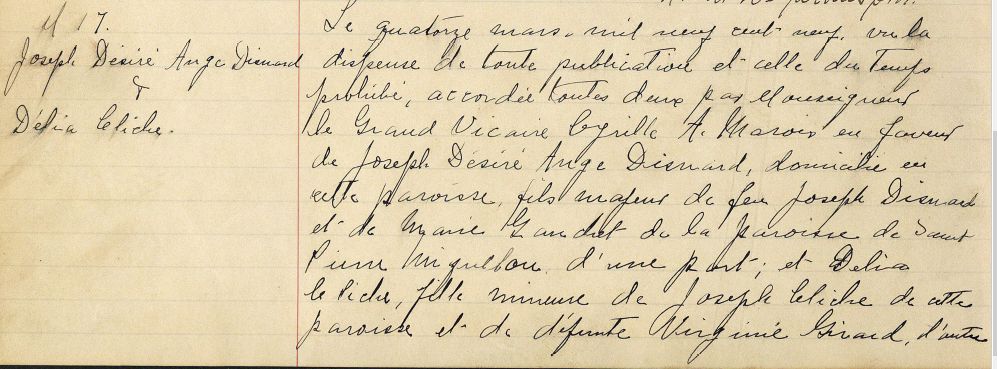 M 17.
Joseph Désiré Ange Disnard
&
Délia Cliche.
Le quatorze mars, mil neuf cent neuf, vu la
dispense de toute publication et celle du temps
prohibé, accordée toutes deux par Monseigneur
le Grand Vicaire Cyrille A. Marois en faveur
de Joseph Désiré Ange Disnard, domicilié en
cette paroisse, fils majeur de feu Joseph Disnard
et de Marie Gaudet de la paroisse de Saint
Pierre Miquelon, d'une part; et Délia
Cliche, fille mineure de Joseph Cliche de cette
paroisse et de défunte Virginie Girard, d'autre